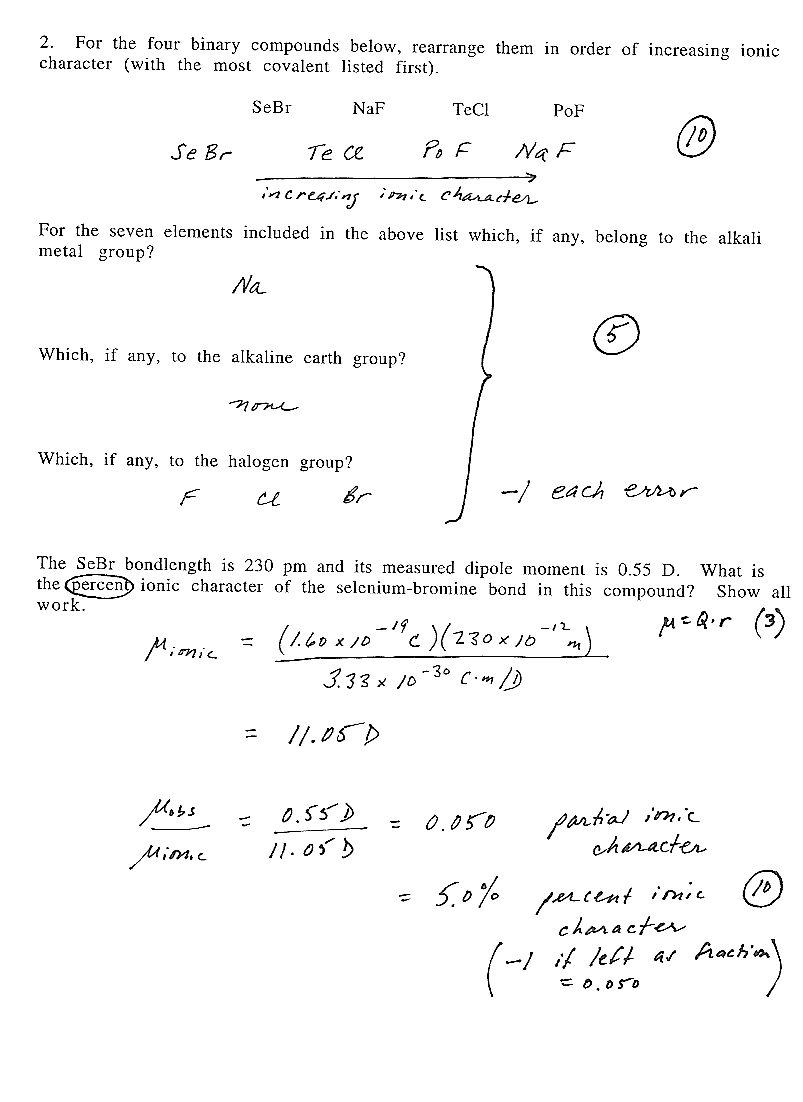 2. For the four binary compounds below, rearrange them in order of increasing ionic
character (with the most covalent listed first).
SeBr NaF TeCl PoF
SeBr TeCl PoF NaF 10
increasing ionic character
For the seven elements included in the above list which, if any, belong to the alkali
metal group?
Na
5
Which, if any, to the alkaline earth group?
none
Which, if any, to the halogen group?
F Cl Br -1 each error
The SeBr bondlength is 230 pm and its measured dipole moment is 0.55 D. What is
the percent ionic character of the selenium-bromine bond in this compound? Show all
work.
μ = Q·r (3)
μionic = (1.60 x 10^-19 C)(230 x 10^-12 m)
3.33 x 10^-30 C·m/D
= 11.05 D
μobs/μionic = 0.55 D/11.05 D = 0.050 partial ionic
character
= 5.0% percent ionic 10
character
(-1 if left as fraction
= 0.050)